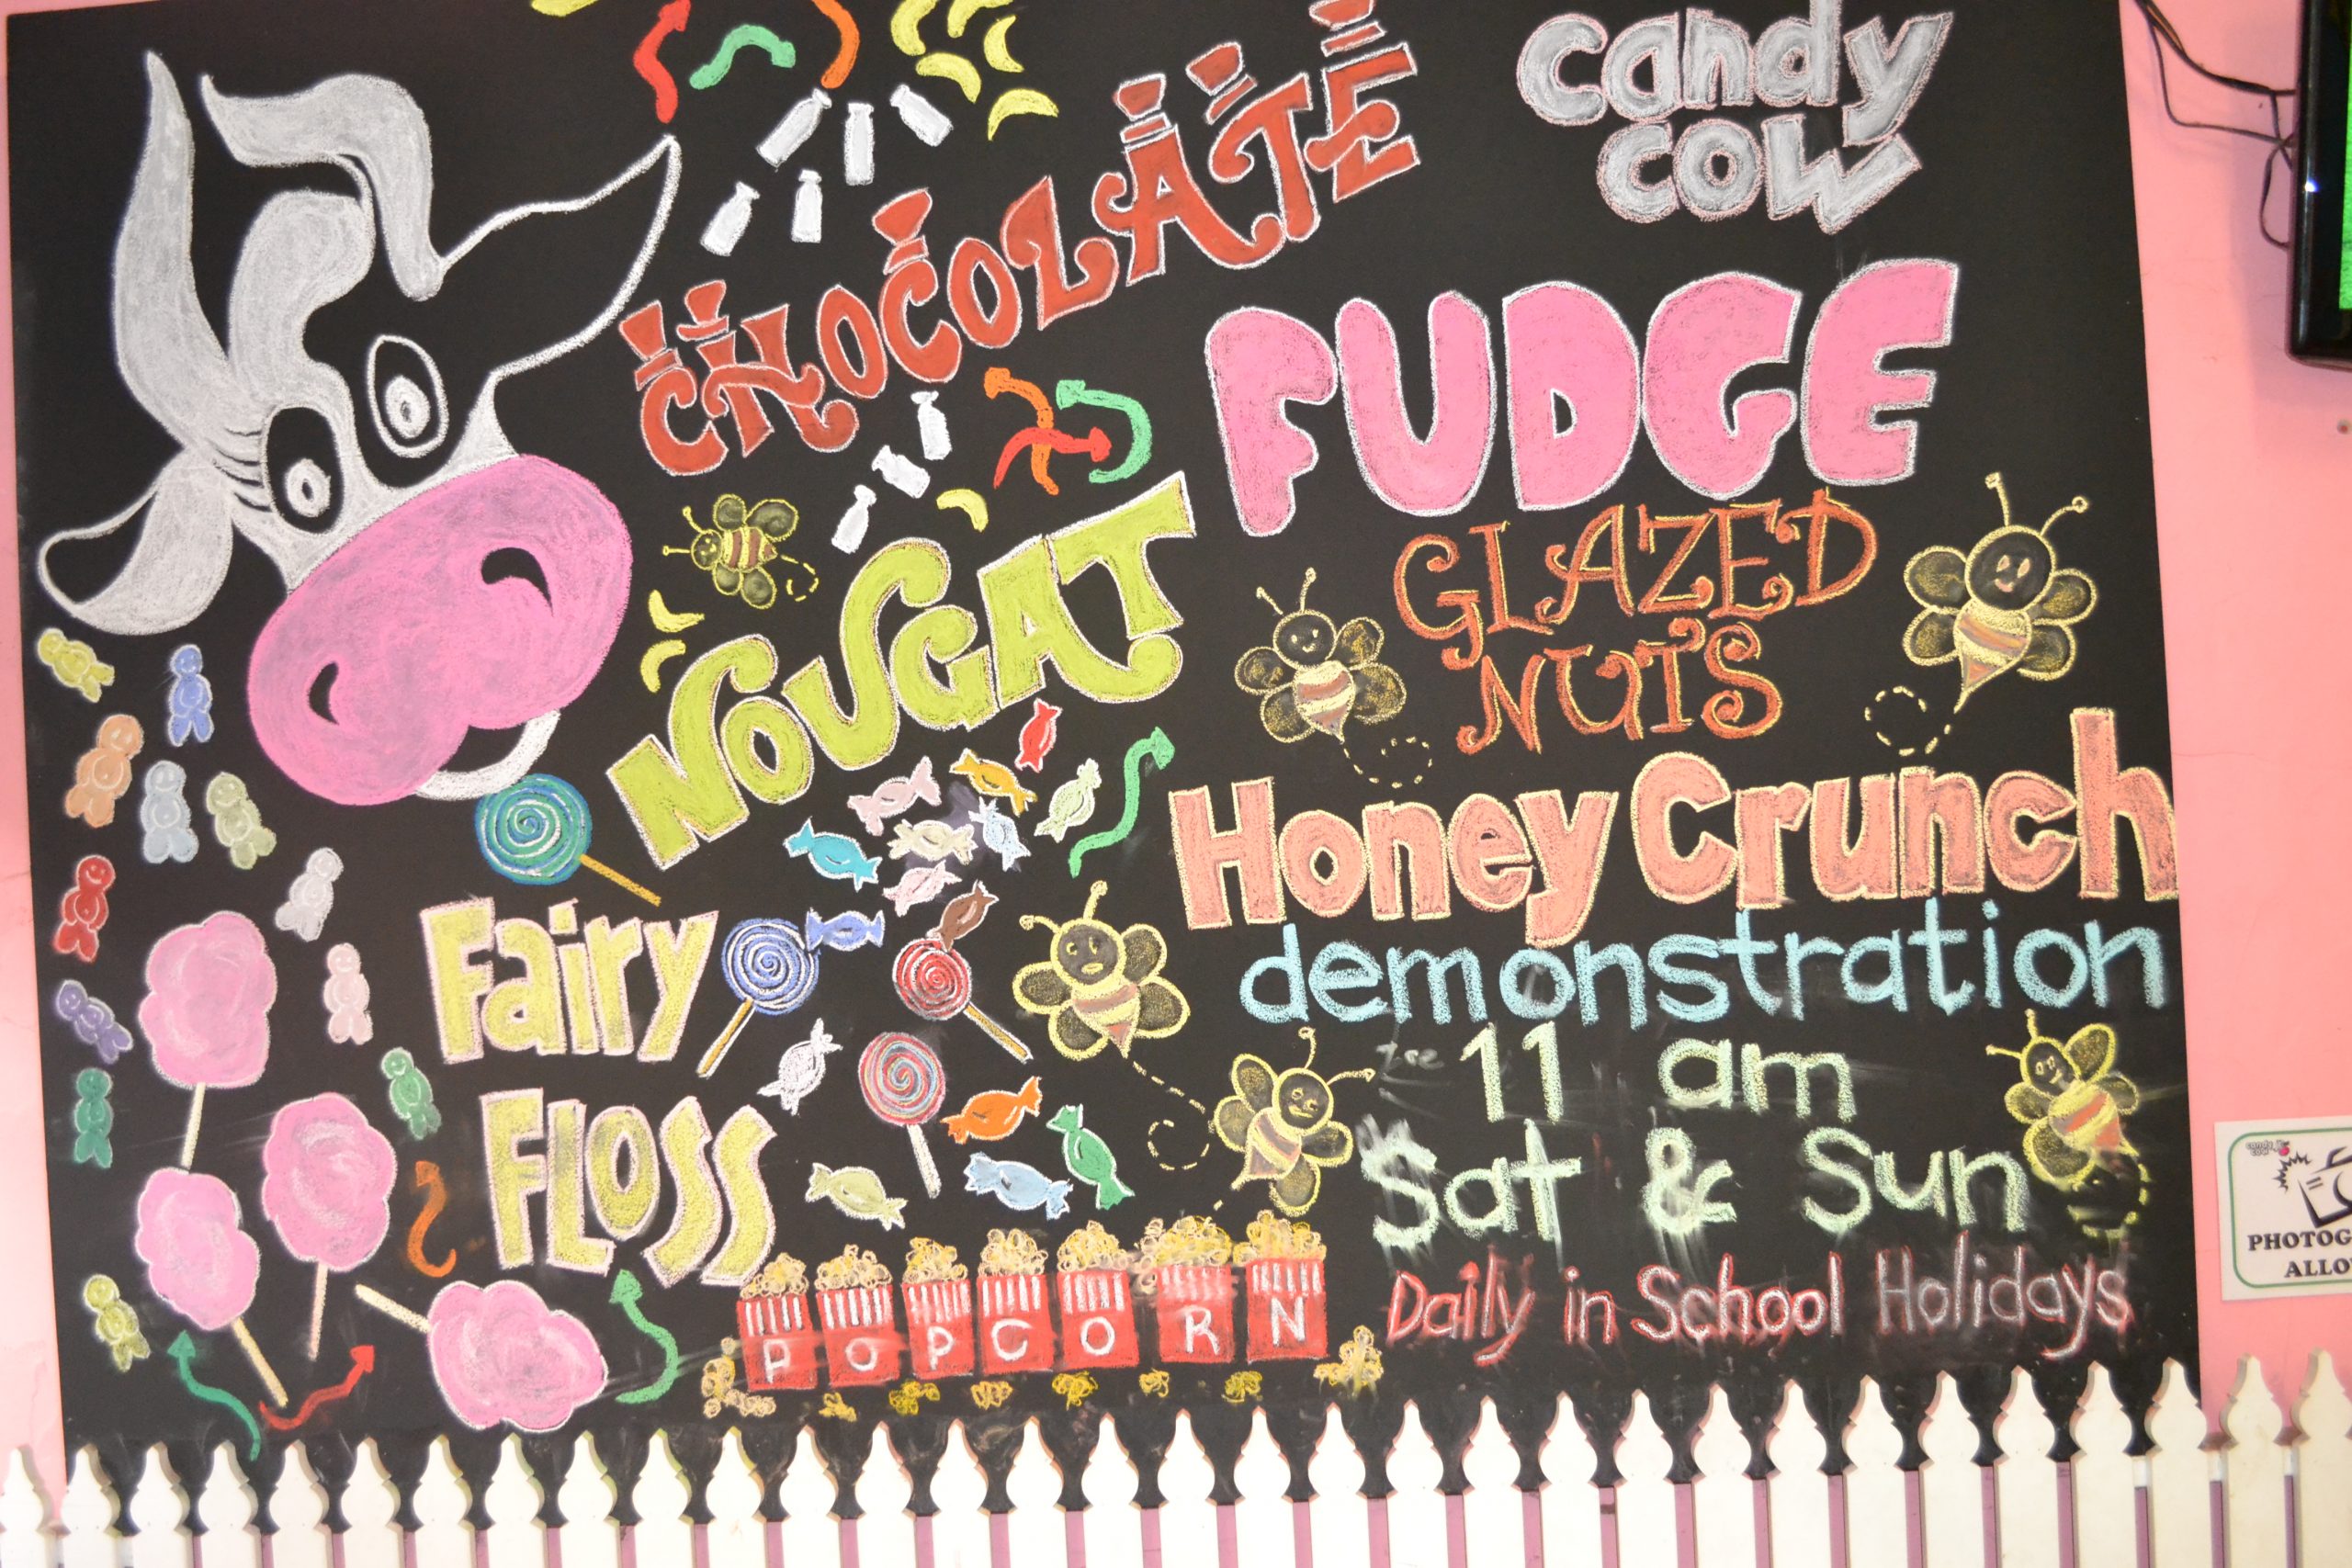 candy
cow
CHOCOLATE
FUDGE
GLAZED
NUTS
NOUGAT
Honey Crunch
demonstration
11 am
Sat & Sun
Daily in School Holidays
Fairy
FLOSS
POPCORN
candy
cow
PHOTOG
ALLO